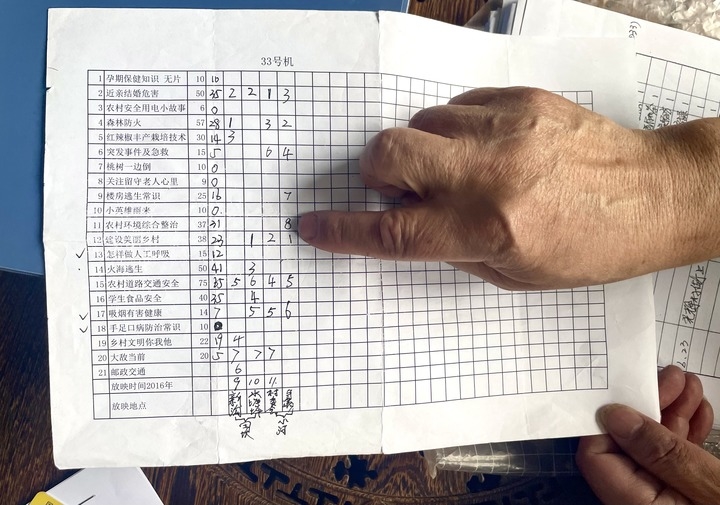 33号机
1 孕期保健知识 无片 10 10
2 近亲结婚危害 50 35 2 2 1 3
3 农村安全用电小故事 6 0
4 森林防火 57 28 1 3 2
5 红辣椒丰产栽培技术 30 14 3
6 突发事件及急救 15 5 6 4
7 桃树一边倒 10 0
8 关注留守老人心里 9 0
9 楼房逃生常识 25 16 7
10 小英雄雨来 10 0
11 农村环境综合整治 37 31 8
12 建设美丽乡村 38 23 1 2 1
13 怎样做人工呼吸 15 12
14 火海逃生 50 41 3
15 农村道路交通安全 75 35 5 6 4 5
16 学生食品安全 40 35 4
17 吸烟有害健康 14 7 5 5 6
18 手足口病防治常识 10
19 乡村文明你我他 22 19 4
20 大敌当前 20 5 7 7 7
21 邮政交通 6
放映时间2016年 9 10 11
放映地点
6.23